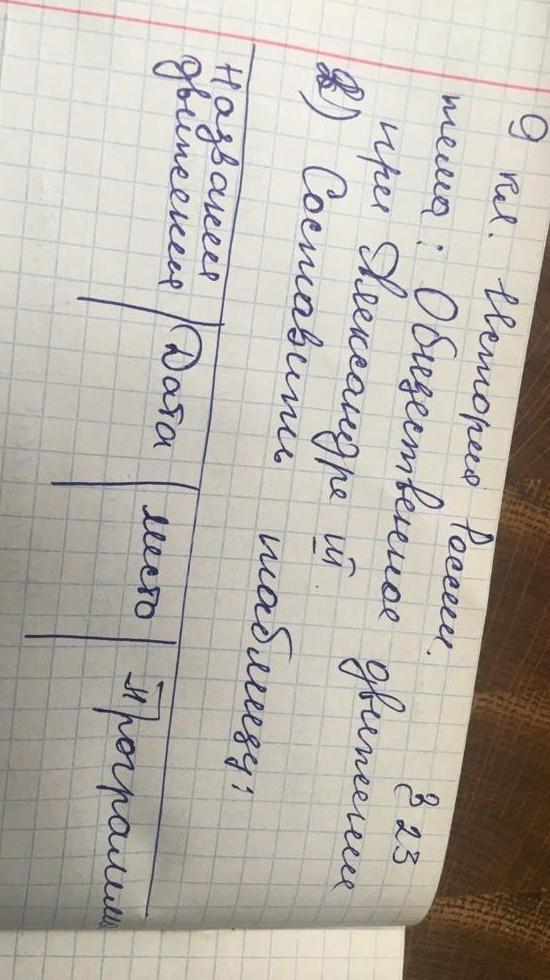 9 кл. История России.
тема: Общественное движение § 23
при Александре III.
2) Составить таблицу:
Название движения | Дата | место | Программы